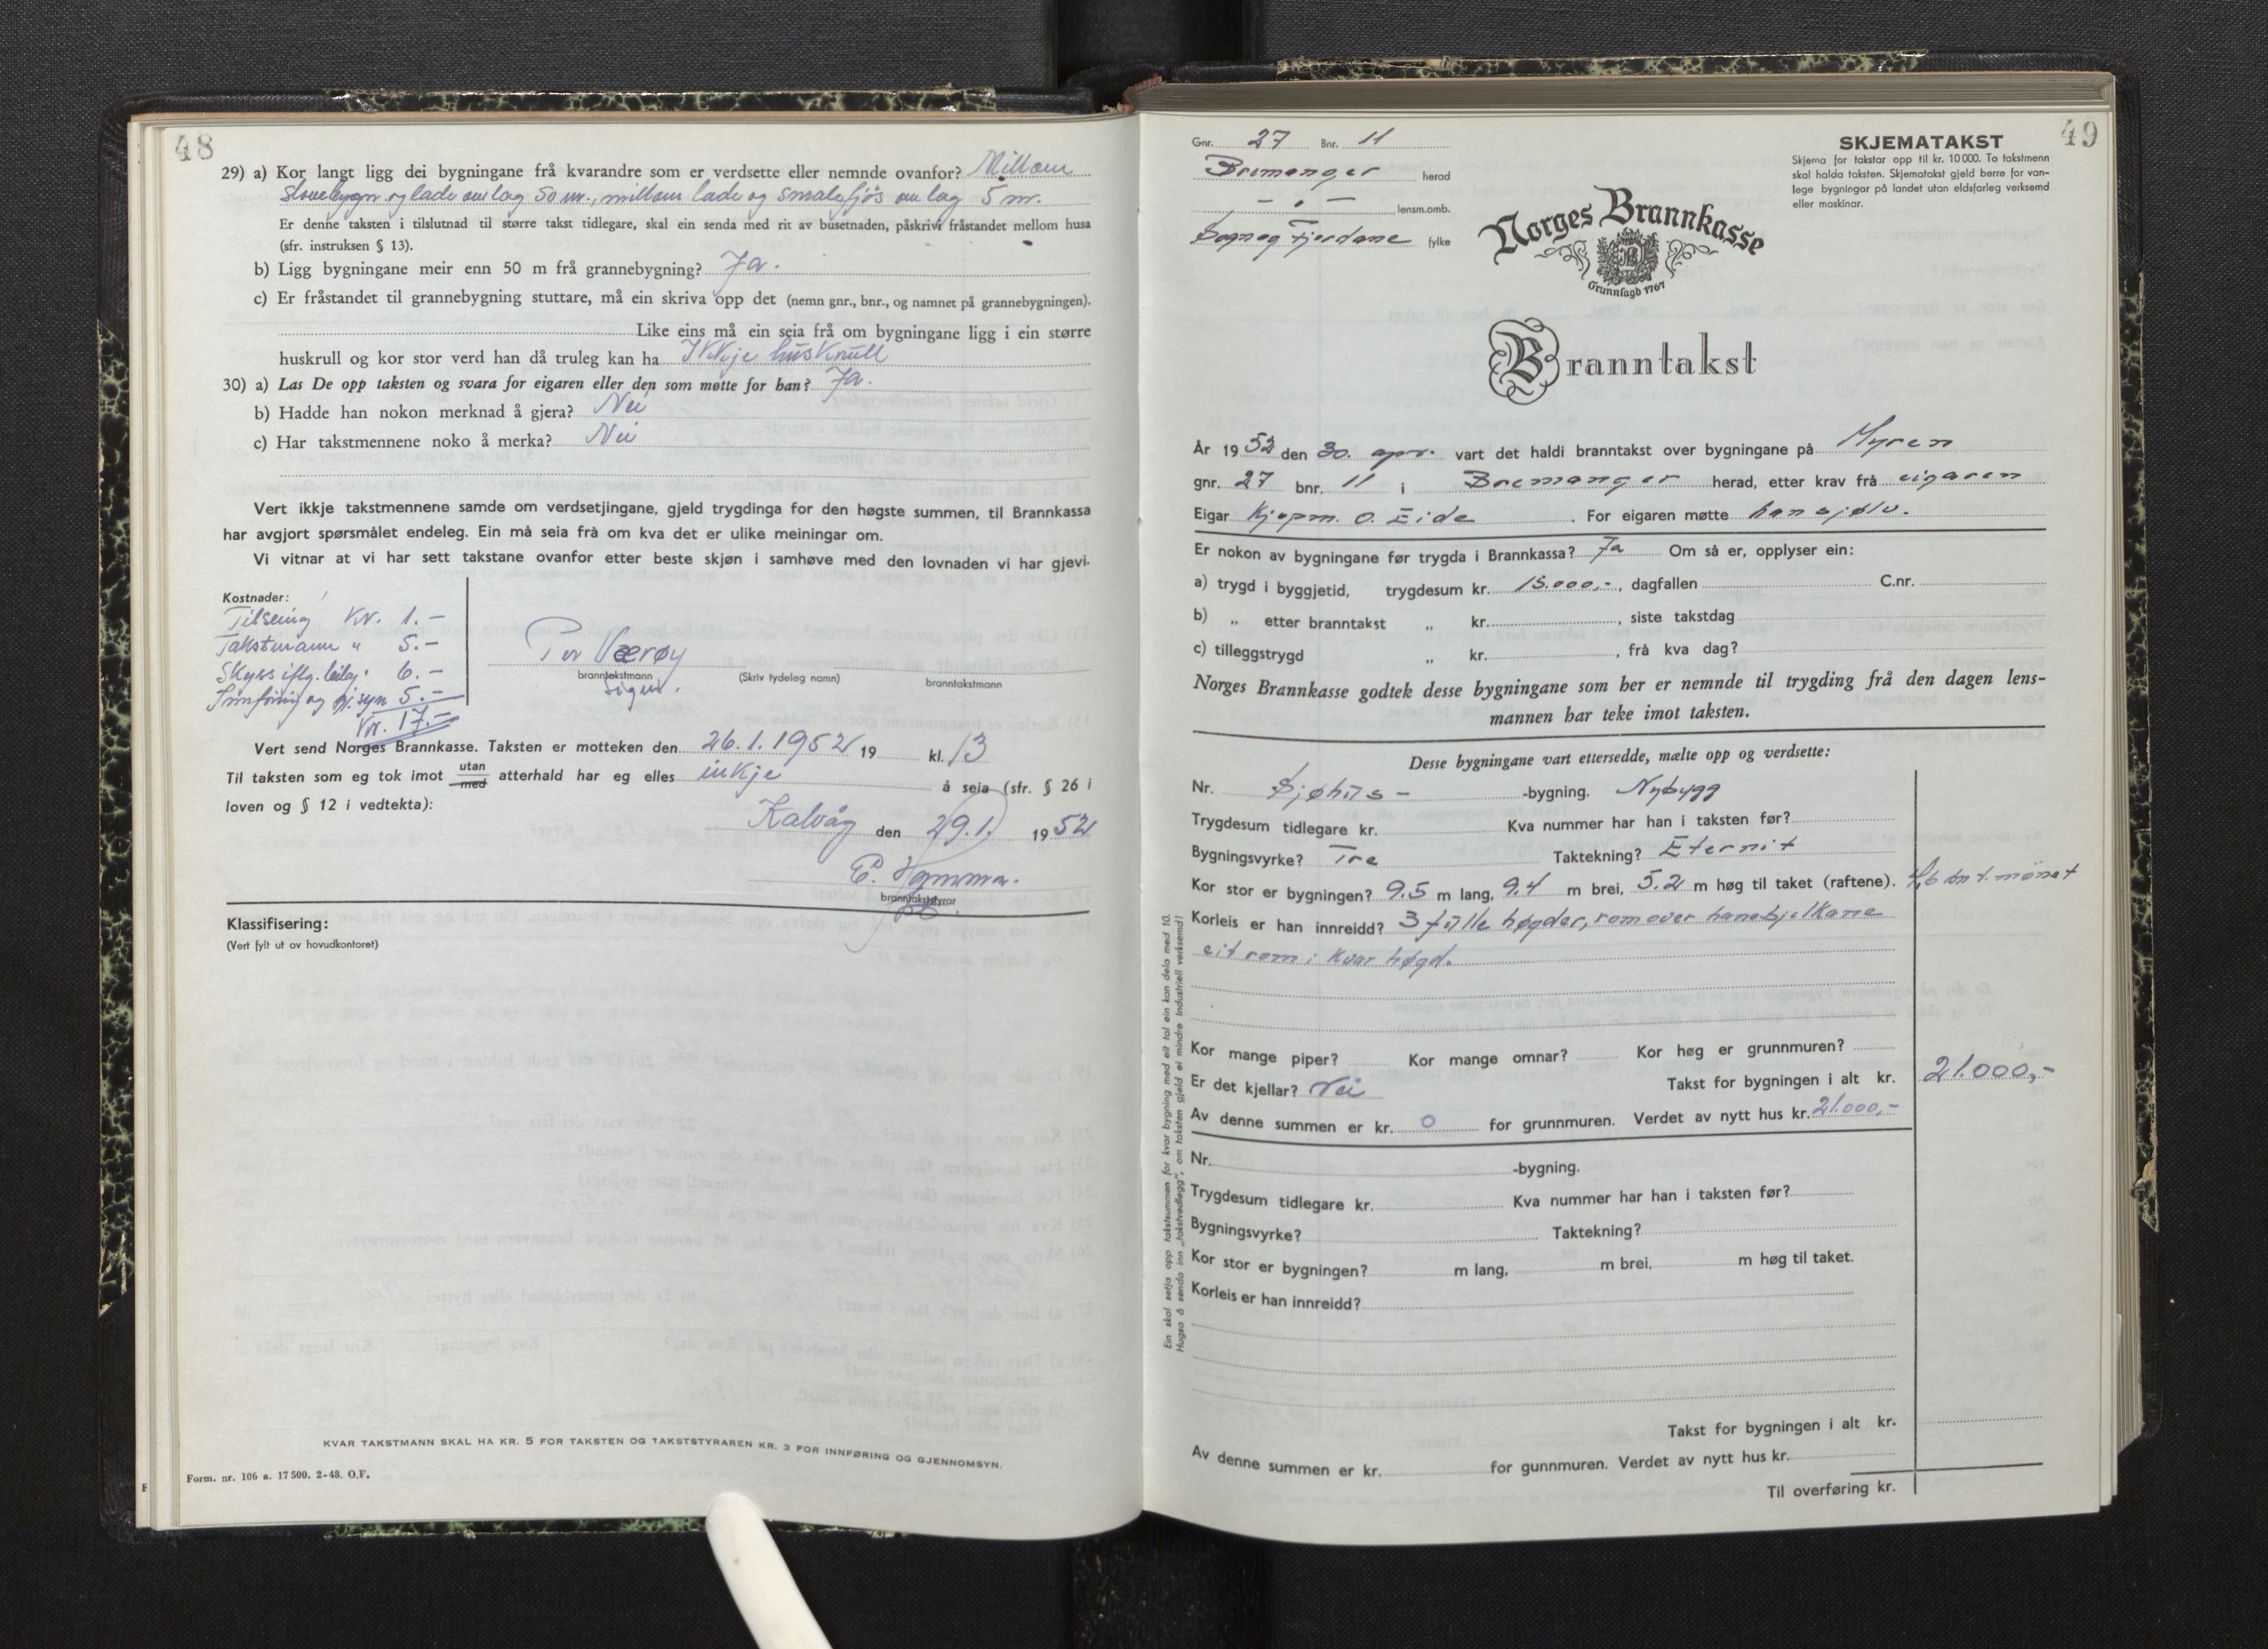 48
29) a) Kor langt ligg dei bygningane frå kvarandre som er verdsette eller nemnde ovanfor? Millom
stovebygn. og lade om lag 50 m., millom lade og smalafjøs om lag 5 m.
Er denne taksten i tilslutnad til større takst tidlegare, skal ein senda med rit av busetnaden, påskrivi fråstandet mellom husa
(sfr. instruksen § 13).
b) Ligg bygningane meir enn 50 m frå grannebygning? Ja.
c) Er fråstandet til grannebygning stuttare, må ein skriva opp det (nemn gnr., bnr., og namnet på grannebygningen).
Like eins må ein seia frå om bygningane ligg i ein større
huskrull og kor stor verd han då truleg kan ha Ikkje huskrull
30) a) Las De opp taksten og svara for eigaren eller den som møtte for han? Ja.
b) Hadde han nokon merknad å gjera? Nei
c) Har takstmennene noko å merka? Nei
Vert ikkje takstmennene samde om verdsetjingane, gjeld trygdinga for den høgste summen, til Brannkassa
har avgjort spørsmålet endeleg. Ein må seia frå om kva det er ulike meiningar om.
Vi vitnar at vi har sett takstane ovanfor etter beste skjøn i samhøve med den lovnaden vi har gjevi.
Kostnader:
Tilseiing Kr. 1.-
Takstmann " 5.-
Skyss iflg. leileg. 6.-
Innføring og gj.syn 5.-
Kr. 17.-
Per Værøy
branntakstmann
(Skriv tydeleg namn)
branntakstmann
sign.
Vert send Norges Brannkasse. Taksten er motteken den 26.1.1952 19 kl. 13
Til taksten som eg tok imot utan
med atterhald har eg elles inkje å seia (sfr. § 26 i
loven og § 12 i vedtekta):
Kalvåg den 29.1. 1952
branntakststyrar
Klassifisering:
(Vert fylt ut av hovudkontoret)
KVAR TAKSTMANN SKAL HA KR. 5 FOR TAKSTEN OG TAKSTSTYRAREN KR. 3 FOR INNFØRING OG GJENNOMSYN.
Form. nr. 106 a. 17 500. 2-48. O.F.
49
Gnr. 27 Bnr. 11
Bremanger herad
- " - lensm.omb.
Sogn og Fjordane fylke
SKJEMATAKST
Skjema for takstar opp til kr. 10 000. To takstmenn
skal halda taksten. Skjematakst gjeld berre for van-
lege bygningar på landet utan eldsfarleg verksemd
eller maskinar.
Norges Brannkasse
Grunnlagd 1767
Branntakst
År 1952 den 30. apr. vart det haldi branntakst over bygningane på Myren
gnr. 27 bnr. 11 i Bremanger herad, etter krav frå eigaren
Eigar Kjøpm. O. Eide. For eigaren møtte han sjølv.
Er nokon av bygningane før trygda i Brannkassa? Ja Om så er, opplyser ein:
a) trygd i byggjetid, trygdesum kr. 15.000,-, dagfallen C.nr.
b) „ etter branntakst „ kr. , siste takstdag
c) tilleggstrygd „ kr. , frå kva dag?
Norges Brannkasse godtek desse bygningane som her er nemnde til trygding frå den dagen lens-
mannen har teke imot taksten.
Desse bygningane vart ettersedde, mælte opp og verdsette:
Nr. Sjøhus- -bygning. Nybygg
Trygdesum tidlegare kr. Kva nummer har han i taksten før?
Bygningsvyrke? Tre Taktekning? Eternit
Kor stor er bygningen? 9.5 m lang, 9.4 m brei, 5.2 m høg til taket (raftene). m t. mønet
Korleis er han innreidd? 3 fulle høgder, rom over hanebjelkane
eit rom i kvar høgd.
Kor mange piper? Kor mange omnar? Kor høg er grunnmuren?
Er det kjellar? Nei Takst for bygningen i alt kr. 21.000,-
Av denne summen er kr. 0 for grunnmuren. Verdet av nytt hus kr. 21.000,-
Nr. -bygning.
Trygdesum tidlegare kr. Kva nummer har han i taksten før?
Bygningsvyrke? Taktekning?
Kor stor er bygningen? m lang, m brei, m høg til taket.
Korleis er han innreidd?
Takst for bygningen i alt kr.
Av denne summen er kr. for gunnmuren. Verdet av nytt hus kr.
Til overføring kr.
Ein skal setja opp takstsummen for kvar bygning med eit tal ein kan dela med 10.
Hugsa å senda inn „takstvedlegg", om taksten gjeld ei mindre industriell verksemd!